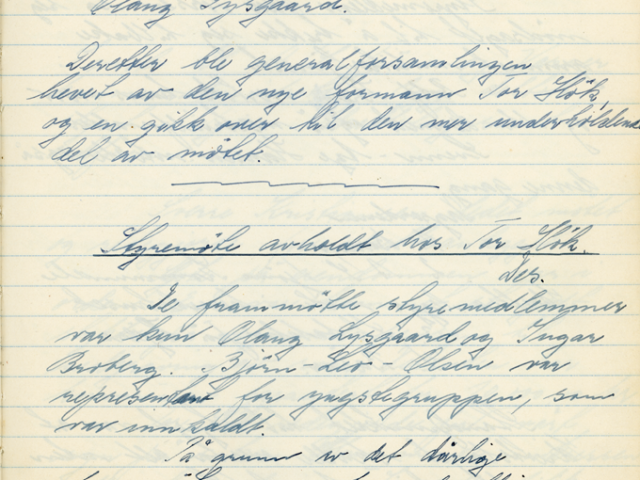 Olaug Lysgaard.
Deretter ble generalforsamlingen
hevet av den nye formann Tor Hök,
og en gikk over til den mer underholdende
del av møtet.
Styremöte avholdt hos Tor Hök.
Des.
De frammøtte styremedlemmer
var kun Olaug Lysgaard og Ingar
Broberg. Björn-Leo-Olsen var
representant for yngstegruppen, som
var innkaldt.
På grunn av det dårlige